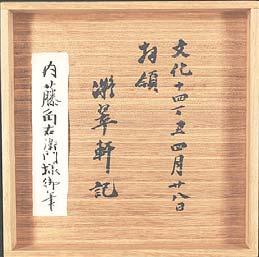 文化十四丁丑四月廿八日
拝領
凝翠軒記
内藤角右衛門様御筆